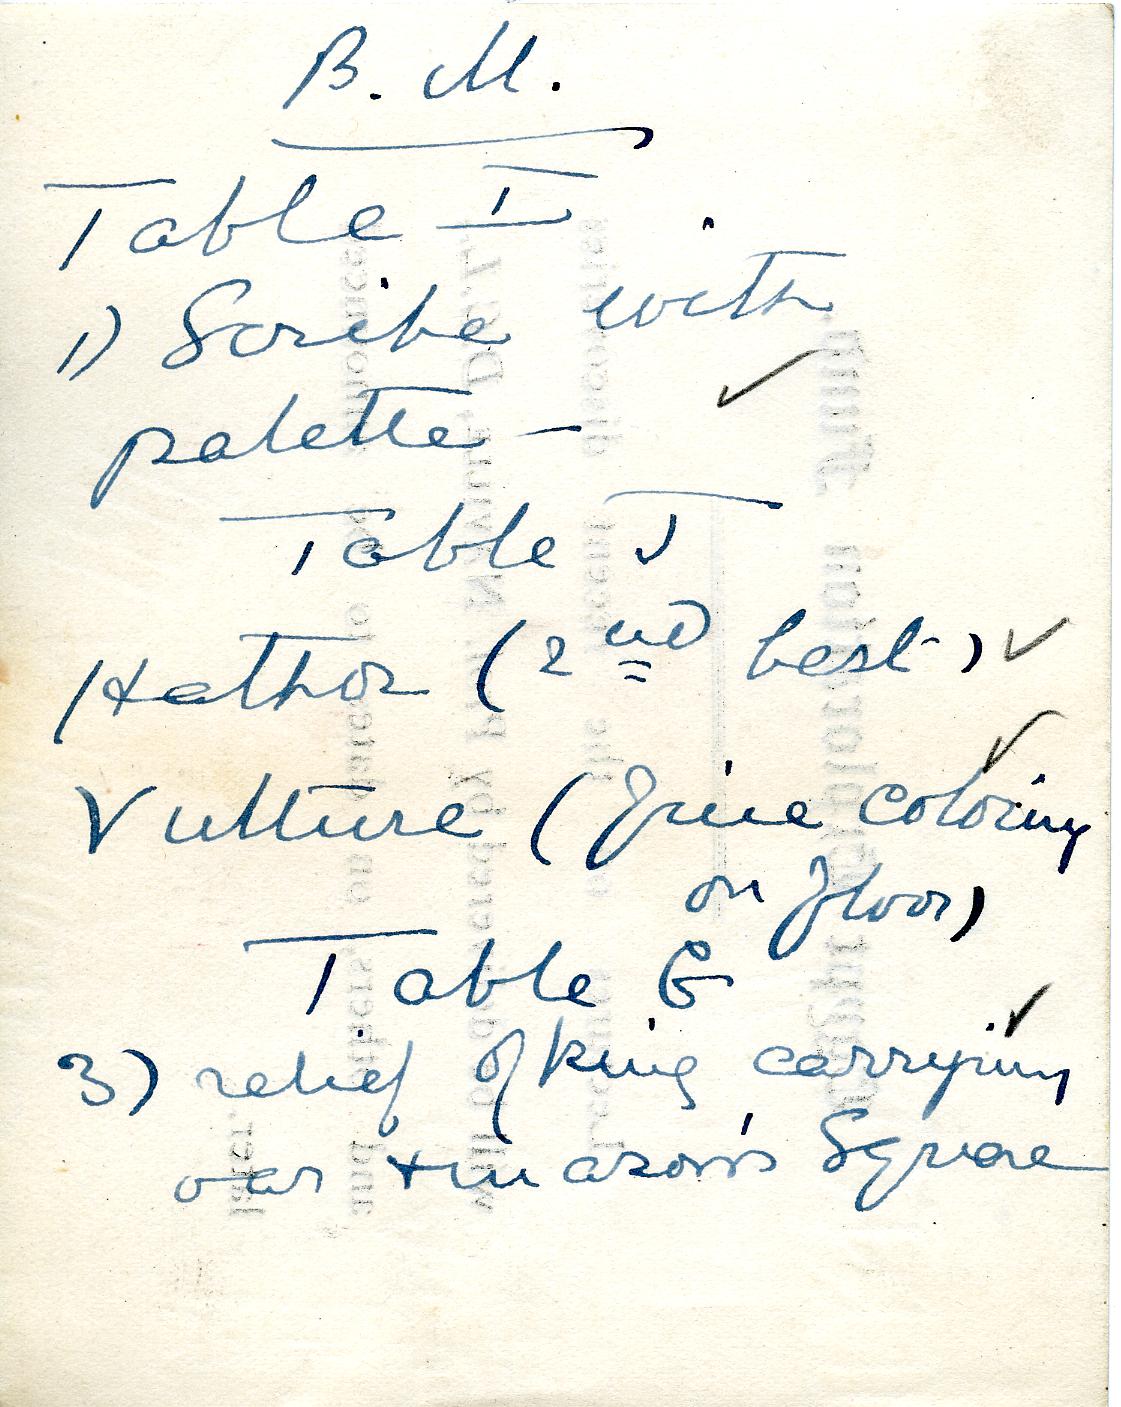 B. M.
Table I
1) Scribe with
palette –
Table J
Hathor (2nd best)
Vulture (fine coloring
on floor)
Table G
3) relief of king carrying
oar + mason's Square